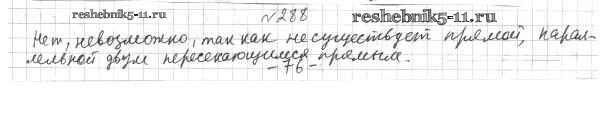 №288
reshebnik5-11.ru
reshebnik5-11.ru
Нет, невозможно, так как не существует прямой, парал-
лельной двум пересекающимся прямым.
-76-